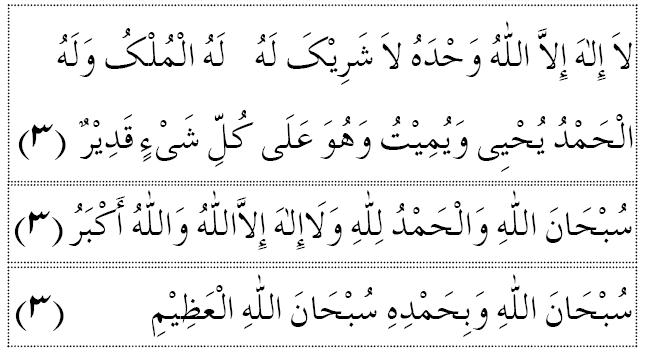 لاَ إِلٰهَ إِلاَّ اللّٰهُ وَحْدَهُ لاَ شَرِيْكَ لَهُ لَهُ الْمُلْكُ وَلَهُ
الْحَمْدُ يُحْيِى وَيُمِيْتُ وَهُوَ عَلَى كُلِّ شَىْءٍ قَدِيْرٌ (٣)
سُبْحَانَ اللّٰهِ وَالْحَمْدُ لِلّٰهِ وَلَاإِلٰهَ إِلاَّاللّٰهُ وَاللّٰهُ أَكْبَرُ (٣)
سُبْحَانَ اللّٰهِ وَبِحَمْدِهِ سُبْحَانَ اللّٰهِ الْعَظِيْمِ (٣)